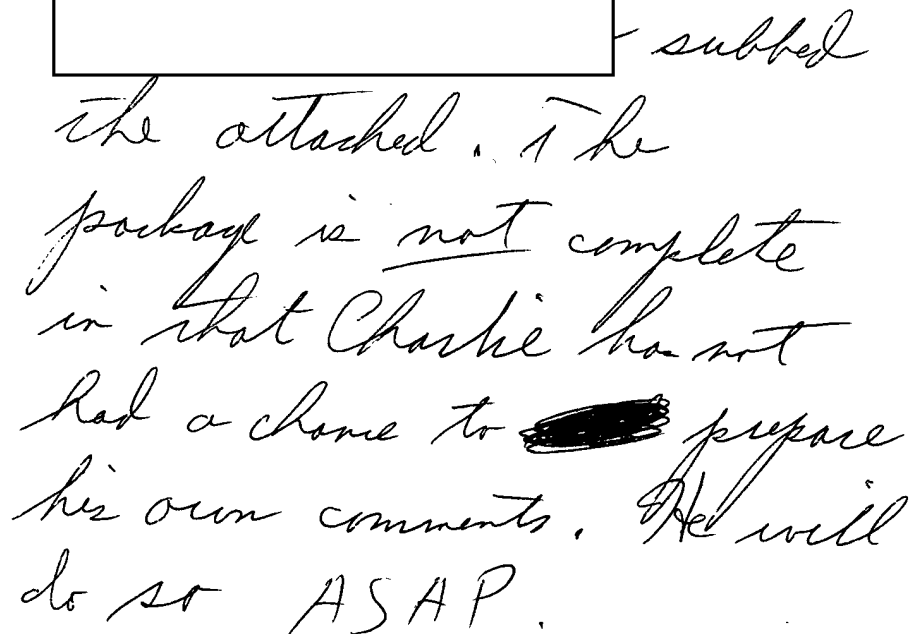 subbed
the attached. The
package is not complete
in that Charlie has not
had a chance to prepare
his own comments. He will
do so ASAP.